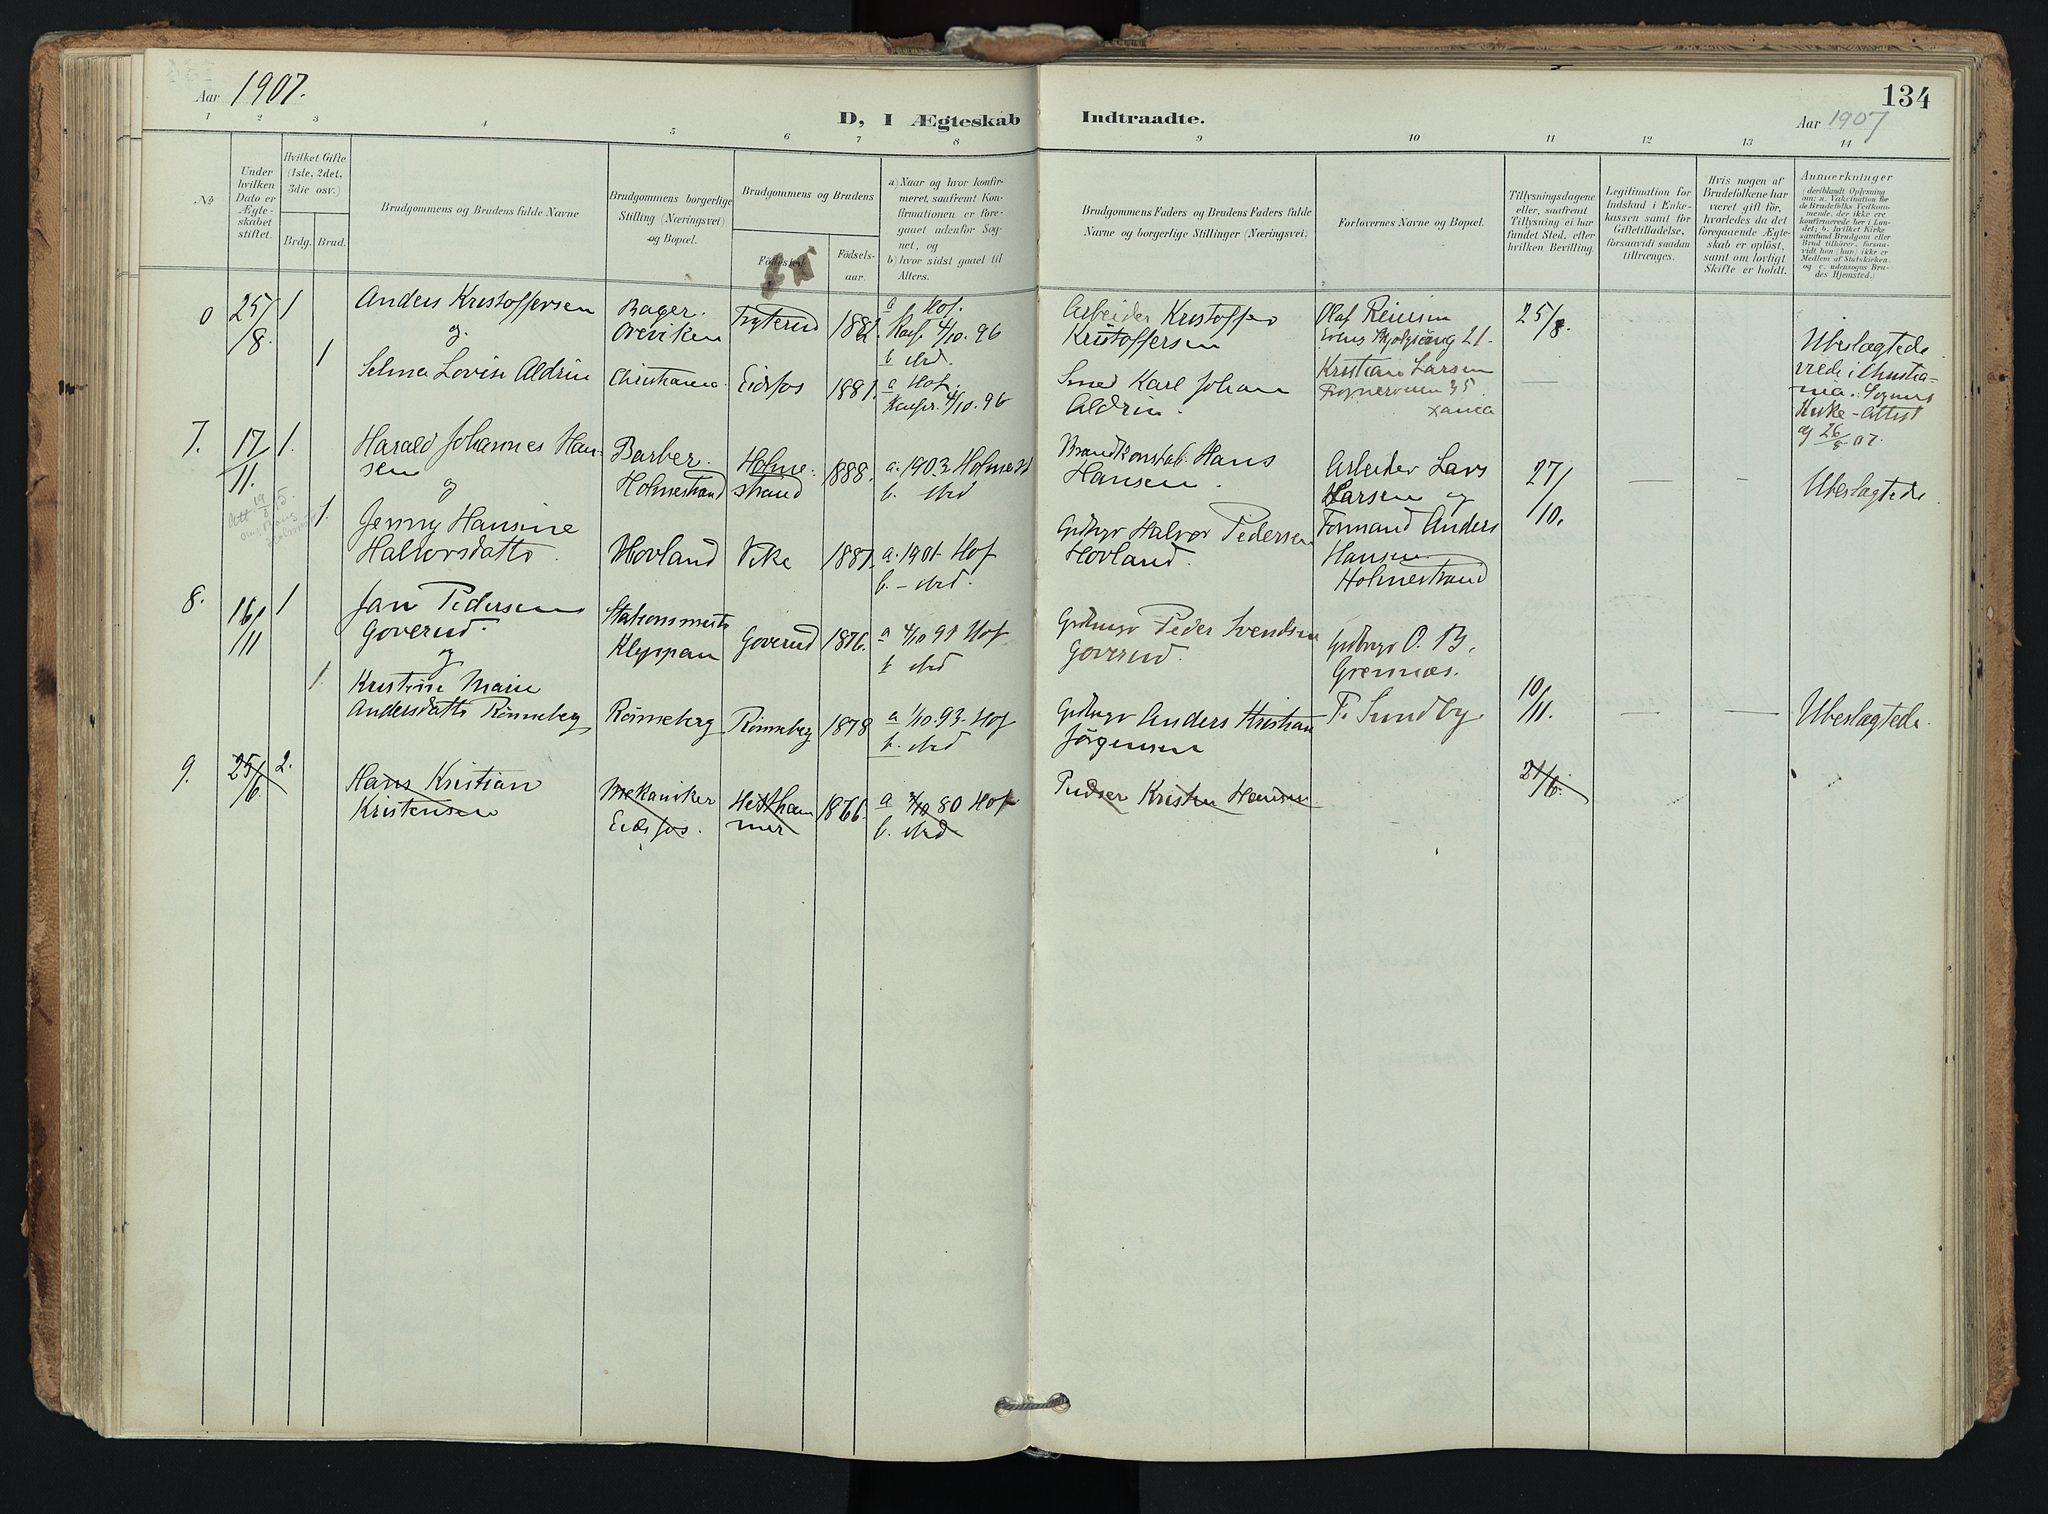 Aar 1907.
134
D, I Ægteskab Indtraadte.
Aar 1907
1 2 3 4 5 6 7 8 9 10 11 12 13 14
No
Under hvilken Dato er Ægteskabet stiftet.
Hvilket Gifte (1ste, 2det, 3die osv.)
Brdg. Brud.
Brudgommens og Brudens fulde Navne
Brudgommens borgerlige Stilling (Næringsvei) og Bopæl.
Brudgommens og Brudens
Fødested.
Fødselsaar.
a) Naar og hvor konfirmeret, saafremt Konfirmationen er foregaaet udenfor Sognet, og
b) hvor sidst gaaet til Alters.
Brudgommens Faders og Brudens Faders fulde Navne og borgerlige Stillinger (Næringsvei)
Forlovernes Navne og Bopæl.
Tillysningsdagene eller, saafremt Tillysning ei har fundet Sted, efter hvilken Bevilling.
Legitimation for Indskud i Enkekassen samt for Giftetilladelse, forsaavidt saadan tiltrænges.
Hvis nogen af Brudefolkene har været gift før, hvorledes da det foregaaende Ægteskab er opløst, samt om lovligt Skifte er holdt.
Anmerkninger (deriblandt Oplysning om: a. Vakcination for de Brudefolks Vedkommende, der ikke ere konfirmerede her i Landet; b. hvilket Kirkesamfund Brudgom eller Brud tilhører, forsaavidt han (hun) ikke er Medlem af Statskirken og c. udensogns Brudes Hjemsted.
25/8. 1 Anders Kristoffersen og.
Bager.
1882.
a Hof.
Konf. 4/10. 96
b do
Arbeider Kristoffer
Kristoffersen
Olaf
21.
25/8.
1 Selma Lovise Aldrin
Christiania
Eidsfos
1881.
a Hof.
Konfir. 4/10. 96
Smed Karl Johan
Aldrin.
Kristian Larsen
35
—
Ubeslægtede
viede i Christiania
Kirke - Attest
af 26/8 07.
7. 17/11. 1. Harald Johannes Hansen
og
Barber.
Holmestrand
Holmestrand
1888.
a. 1903. Holmestd
b. do
Brandkonstab. Hans
Hansen.
Arbeider Lars
Larsen og
27/10.
— — Ubeslægtede
1. Jenny Hansine
Halvorsdatter
Hovland
Vike
1881.
a. 1901 Hof
b. - do
Gdbrgr Halvor Pedersen
Hovland.
Formand Anders
Hansen
Holmestrand
8. 16/11 1 Jan Pedersen
Goverud.
og
Stationsmester
Klyppan
Goverud
1876.
a 4/10 91 Hof
b do
Gdbrgr Peder Svendsen
Goverud.
Gdbrgr O. B.
Grennæs.
1. Kristine Marie
Andersdatter Rønneberg
Rønneberg
Rønneberg
1878
a 1/10. 93. Hof
b. do
Gdbrgr Anders Kristian
Jørgensen
P. Sundby
10/11.
— — Ubeslægtede.
9. 25/6. 2. Hans Kristian
Kristensen
Mekaniker
Eidsfos.
1866.
80 Hof
b. do
Pudser Kristen Hansen.
21/6.